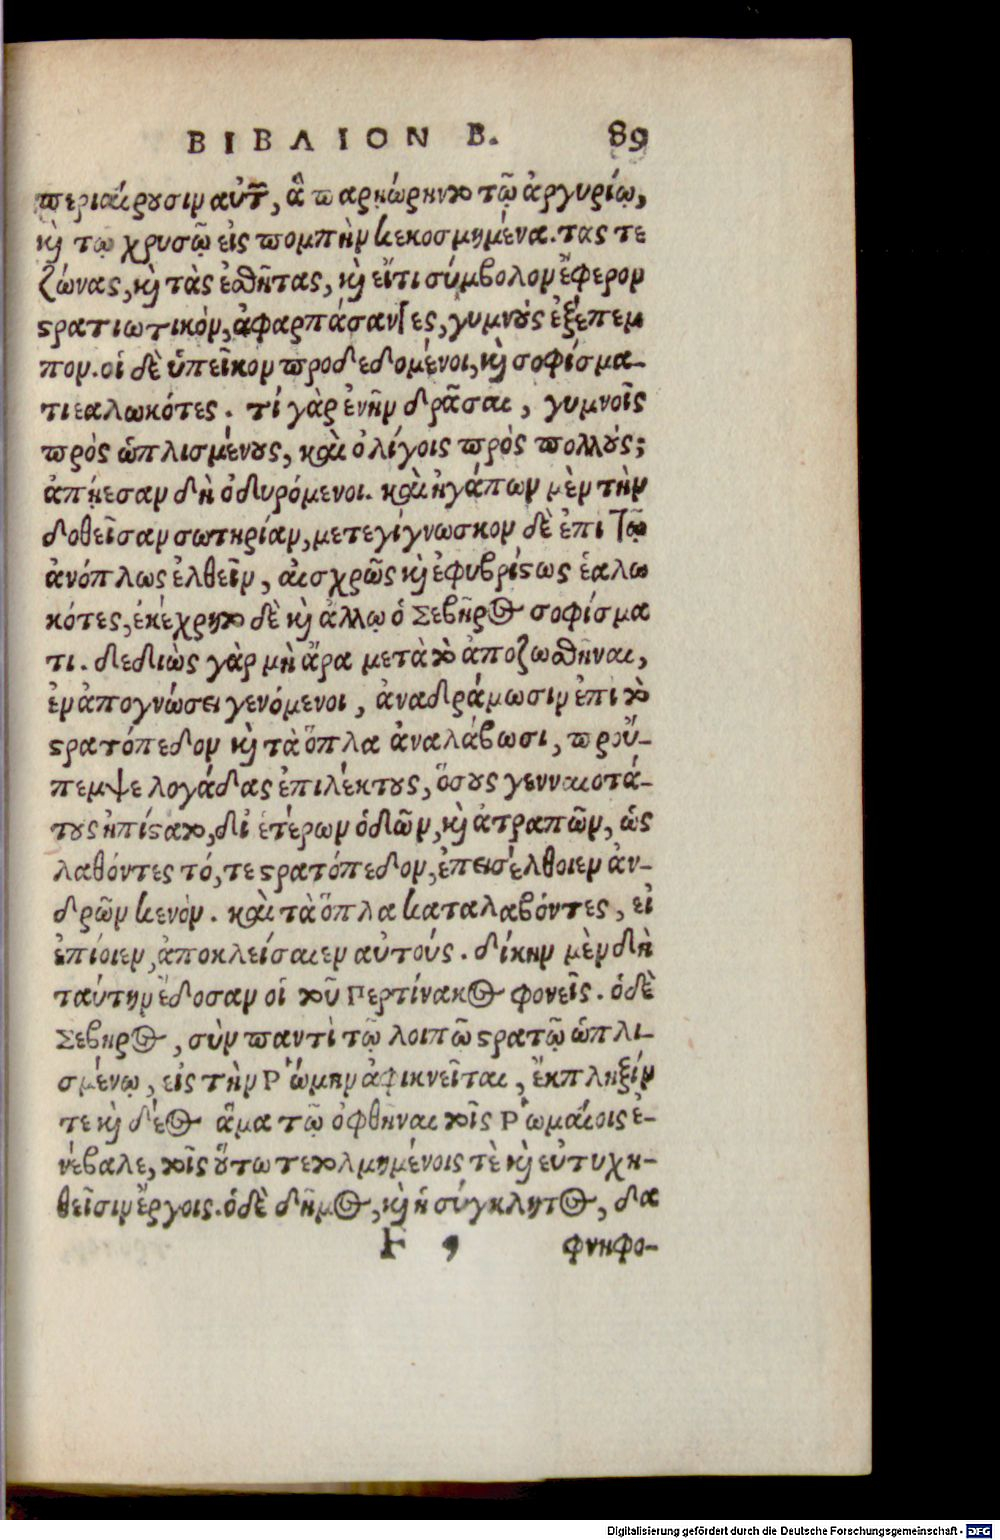 ΒΙΒΛΙΟΝ Β. 89
περιαίρουσιν αὐτῶν, ἃ παρῃώρηντο τῷ ἀργυρίῳ,
καὶ τῳ χρυσῷ εἰς πομπὴν κεκοσμημένα. τας τε
ζώνας, καὶ τὰς ἐσθῆτας, καὶ εἴτι σύμβολον ἔφερον
στρατιωτικόν, ἀφαρπάσαντες, γυμνοὺς ἐξέπεμ
πον. οἱ δὲ ὑπεῖκον προδεδομένοι, καὶ σοφίσμα-
τι εαλωκότες. τί γὰρ ἐνῆν δρᾶσαι, γυμνοῖς
πρὸς ὡπλισμένους, καὶ ὀλίγοις πρὸς πολλούς;
ἀπῄεσαν δὴ ὀδυρόμενοι. καὶ ἠγάπων μὲν τὴν
δοθεῖσαν σωτηρίαν, μετεγίγνωσκον δὲ ἐπι τῷ
ἀνόπλως ἐλθεῖν, αισχρῶς καὶ ἐφυβρίστως ἑαλω
κότες, ἐκέχρητο δὲ καὶ ἄλλῳ ὁ Σεβῆρος σοφίσμα
τι. δεδιὼς γὰρ μὴ ἄρα μετὰ τὸ ἀποζωσθῆναι,
ἐν ἀπογνώσει γενόμενοι, ἀναδράμωσιν ἐπι τὸ
στρατόπεδον καὶ τὰ ὅπλα ἀναλάβωσι, προὔ-
πεμψε λογάδας ἐπιλέκτους, ὅσους γενναιοτά-
τους ἠπίστατο, δι ἑτέρων ὁδῶν, καὶ ἀτραπῶν, ὡς
λαθόντες τό, τε στρατόπεδον, ἐπεισέλθοιεν ἀν-
δρῶν κενὸν. καὶ τὰ ὅπλα καταλαβόντες, εἰ
ἐπίοιεν, ἀποκλείσαιεν αὐτούς. δίκην μὲν δὴ
ταύτην ἔδοσαν οἱ τοῦ Περτίνακος φονεῖς. ὁδὲ
Σεβηρος, σὺν παντὶ τῷ λοιπῷ στρατῷ ὡπλι-
σμένῳ, εἰς τὴν Ρ῾ώμην ἀφικνεῖται, ἔκπληξίν
τε καὶ δέος ἅμα τῷ ὀφθῆναι τοῖς Ρ῾ωμαίοις ἐ-
νέβαλε, τοῖς οὕτω τετολμημένοις τὲ καὶ εὐτυχη-
θεῖσιν ἔργοις. ὁδὲ δῆμος, καὶ ἡ σύγκλητος, δα
F , φνηφο-
Digitalisierung gefördert durch die Deutsche Forschungsgemeinschaft - DFG